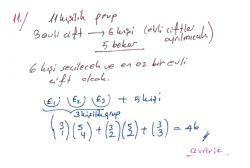 11.) 11 kişilik grup
3 evli çift → 6 kişi (evli çiftler ayrılmıcak)
5 bekar
6 kişi seçilecek ve en az bir evli
çift olcak.
(E₁) (E₂) (E₃) + 5 kişi
3 kişilik grup
(3 1)(5 4) + (3 2)(5 2) + (3 3) = 46